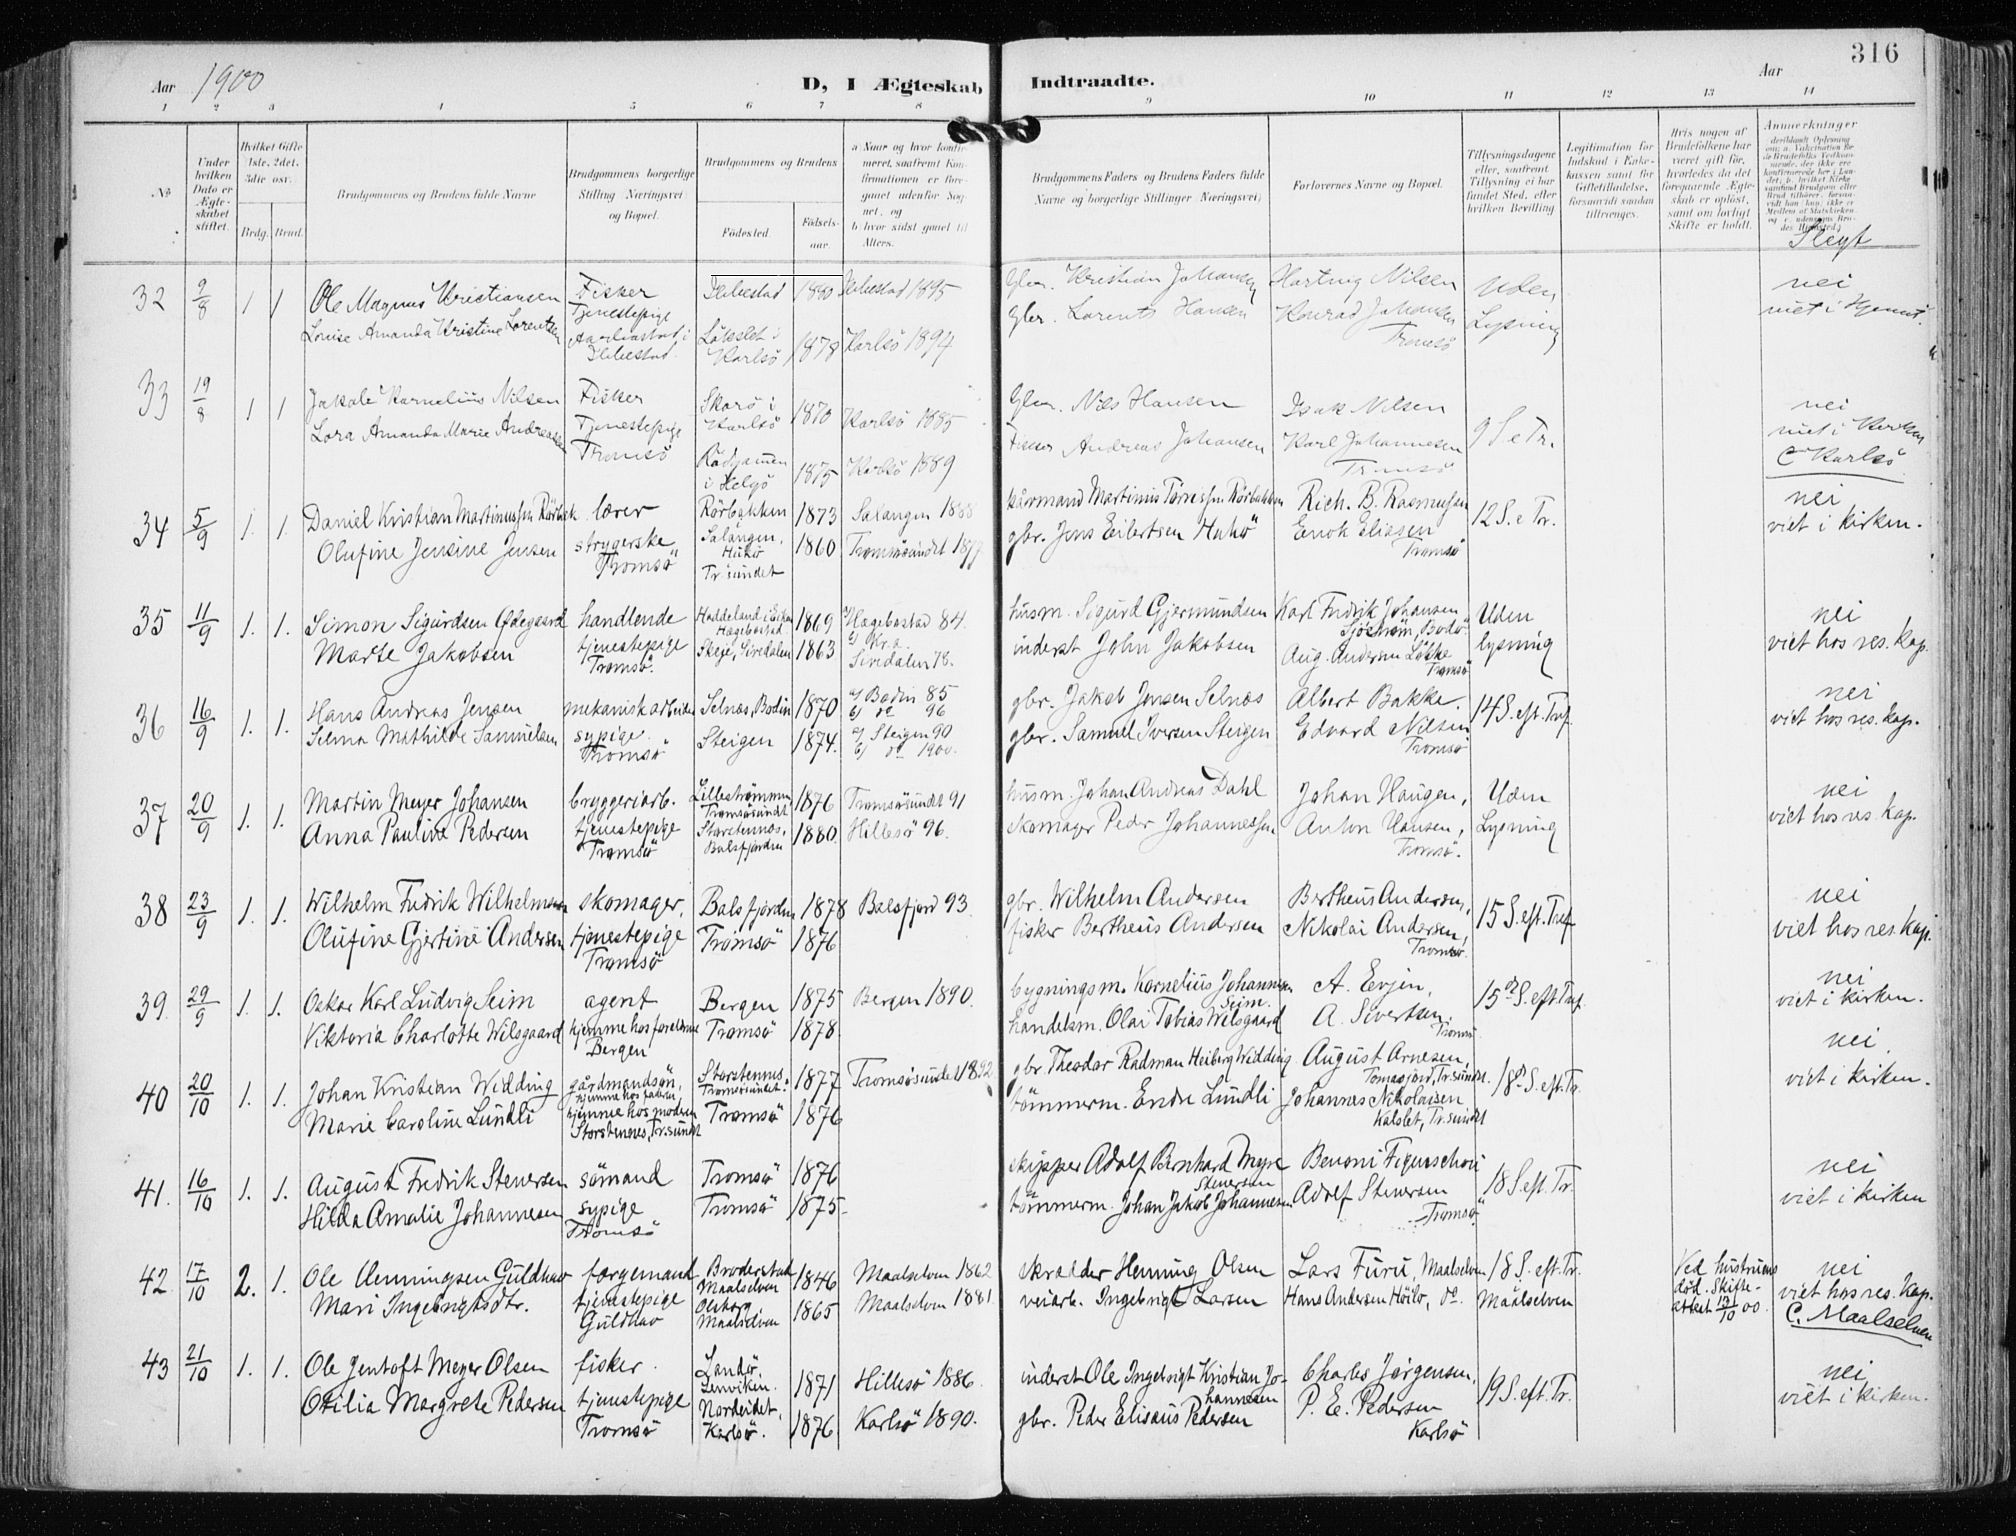 316
Aar 1900
D, I Ægteskab Indtraadte.
Aar
1 2 3 4 5 6 7 8 9 10 11 12 13 14
No
Under hvilken Dato er Ægteskabet stiftet.
Hvilket Gifte 1ste, 2det, 3die osv.
Brdg. Brud.
Brudgommens og Brudens fulde Navne
Brudgommens borgerlige Stilling Næringsvei og Bopæl.
Brudgommens og Brudens
Fødested. Fødselsaar.
a Naar og hvor konfirmeret, saafremt Konfirmationen er foregaaet udenfor Sognet, og
b hvor sidst gaaet til Alters.
Brudgommens Faders og Brudens Faders fulde Navne og borgerlige Stillinger Næringsvei)
Forlovernes Navne og Bopæl.
Tillysningsdagene eller, saafremt Tillysning ei har fundet Sted, efter hvilken Bevilling
Legitimation for Indskud i Enkekassen samt for Giftetilladelse, forsaavidt saadan tiltrænges.
Hvis nogen af Brudefolkene har været gift før, hvorledes da det foregaaende Ægteskab er opløst, samt om lovligt Skifte er holdt.
Anmerkninger
Slegt
32 9/8 1 1 Ole Magnus Kristiansen Fisker 1880 1895 Gbr. Kristian Johansen Hartvig Nilsen Uden nei
Louise Amanda Kristine Lorentsen Tjenestepige Karlsö 1878 Karlsö 1894 Gbr. Lorents Hansen Konrad Johansen Tromsö Lysning
33 19/8 1 1 Jakob Kornelius Nilsen Fisker Skorö i Karlsö 1870 Karlsö 1885 Gbr. Nils Hansen Isak Nilsen 9 S. e Tr. nei
Lora Amanda Marie Andreassen Tjenestepige Tromsö i Helgö 1875 Karlsö 1889 Fisker Andreas Johansen Karl Johannesen Tromsö viet i Kirken
C Karlsö
34 5/9 1. 1. Daniel Kristian Martinussen Rörbak lærer Rörbakken Salangen, 1873 Salangen 1888 kårmand Martinus Rörbakken Rich. B. Rasmussen 12 S. e Tr. nei
Olufine Jensine Jensen strygerske Tromsö Tr.sundet 1860 Tromsösundet 1877 gbr. Jens Eilertsen Enok Eliasen Tromsö viet i kirken.
35 11/9 1. 1. Simon Sigurdsen Ødegaard handlende Hægebostad 1869 a/ Hægebostad 84. husm. Sigurd Gjermundsen Karl Fredrik Johansen Sjöström, Bodö Uden nei
b/ Kr.a
Marte Jakobsen tjenestepige Tromsö. Skeje, Siredalen 1863 Siredalen 78. inderst John Jakobsen Aug. Andersen Løkke Tromsö lysning viet hos res. kap.
36 16/9 1. 1. Hans Andreas Jensen mekanisk arbeider Selnæs, Bodin 1870 a/ Bodin 85 b/ do 96 gbr. Jakob Jensen Selnæs Albert Bakke. 14 S. eft. Tref. nei
Selma Mathilde Samuelsen sypige. Tromsö Steigen 1874. a/ Steigen 90 b/ do 1900. gbr. Samuel Iversen Steigen Edvard Nilsen Tromsö viet hos res. kap.
37 20/9 1. 1. Martin Meyer Johansen bryggeriarb. Lillestrømmen Tromsösundet 1876 Tromsösundet 91 husm. Johan Andreas Dahl Johan Haugen, Uden nei
Anna Pauline Pedersen tjenestepige Tromsö Storstennes, Balsfjorden 1880. Hillesö 96. skomager Peder Johannessen Anton Hansen, Tromsö. Lysning viet hos res. kap.
38 23/9 1. 1. Wilhelm Fredrik Wilhelmsen skomager, Balsfjorden 1878 Balsfjord 93. gbr. Wilhelm Andersen Bertheus Andersen, 15 S. eft. Tref nei
Olufine Gjertine Andersen tjenestepige Tromsö Tromsö 1876 fisker Bertheus Andersen Nikolai Andersen, Tromsö. viet hos res. kap.
39. 29/9 1. 1. Oskar Karl Ludvig Seim agent Bergen 1875 Bergen 1890. bygningsm. Kornelius Johannesen Seim. A. Evjen, 15de S. eft. Tref. nei
Viktoria Charlotte Wilsgaard hjemme hos forældrene Bergen Tromsö 1878. handelsm. Olai Tobias Wilsgaard A. Sivertsen. Tromsö viet i kirken.
40 20/10 1. 1. Johan Kristian Widding gårdmandsøn, hjemme hos faderen Storstennes, Tromsösundet. 1877 Tromsösundet 1892 gbr. Theodor Radman Heiberg Widding August Arnesen, Tomasjord, Tr.sundet. 18de S. eft. Tr. nei
Marie Caroline Lundli hjemme hos moderen Storstennes, Tr.sundet Tromsö 1876 tömmerm. Endre Lundli Johannes Nikolaisen Kalslet, Tr.sundet viet i kirken.
41. 16/10 1. 1. August Fredrik Stenersen sömand Tromsö 1876 skipper Adolf Bernhard Myre Stenersen Benoni Figenschou 18 S. eft. Tr. nei
Hilda Amalie Johannesen sypige Tromsö Tromsö 1875 tömmerm. Johan Jakob Johannesen Adolf Stenersen Tromsö. viet i kirken
42. 17/10 2. 1. Ole Henningsen Guldhav forgemand Broderstad Maalselven 1846 Maalselven 1862 skrædder Henning Olsen Lars Furu, Maalselven 18 S. eft. Tr. Ved hustruens død. Skifteattest 13/10 00. nei
Mari Ingebrigtsdtr. tjenestepige Guldhav Maalselven 1865 Maalselven 1881. veiarb. Ingebrigt Larsen Hans Andersen Höilo, do. Maalselven viet hos res. kap.
C. Maalselven
43 21/10 1. 1. Ole Jentoft Meyer Olsen fisker. Lenviken. 1871 Hillesö 1886. inderst Ole Ingebrigt Kristian Johannesen Charles Jørgensen, 19 S. eft. Tr. nei
Otilia Margrete Pedersen tjenestepige Tromsö Nordeidet, Karlsö. 1876 Karlsö 1890. gbr. Peder Elisæus Pedersen P. E. Pedersen Karlsö viet i kirken.